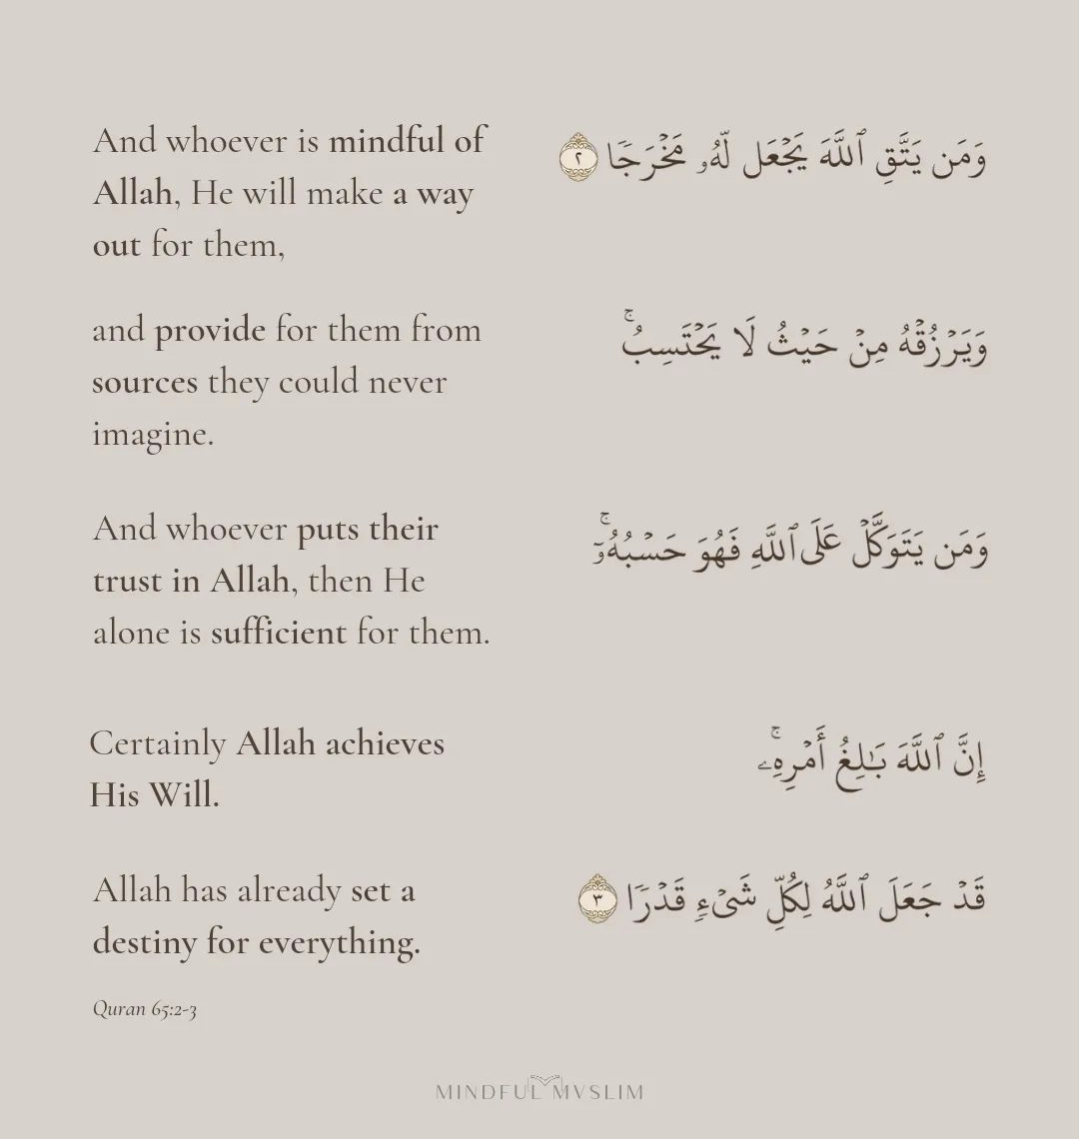 And whoever is mindful of
Allah, He will make a way
out for them,
وَمَن يَتَّقِ ٱللَّهَ يَجْعَل لَّهُۥ مَخْرَجًا ٢
and provide for them from
sources they could never
imagine.
وَيَرْزُقْهُ مِنْ حَيْثُ لَا يَحْتَسِبُ ۚ
And whoever puts their
trust in Allah, then He
alone is sufficient for them.
وَمَن يَتَوَكَّلْ عَلَى ٱللَّهِ فَهُوَ حَسْبُهُۥٓ ۚ
Certainly Allah achieves
His Will.
إِنَّ ٱللَّهَ بَـٰلِغُ أَمْرِهِۦ ۚ
Allah has already set a
destiny for everything.
قَدْ جَعَلَ ٱللَّهُ لِكُلِّ شَىْءٍ قَدْرًا ٣
Quran 65:2-3
MINDFUL MVSLIM